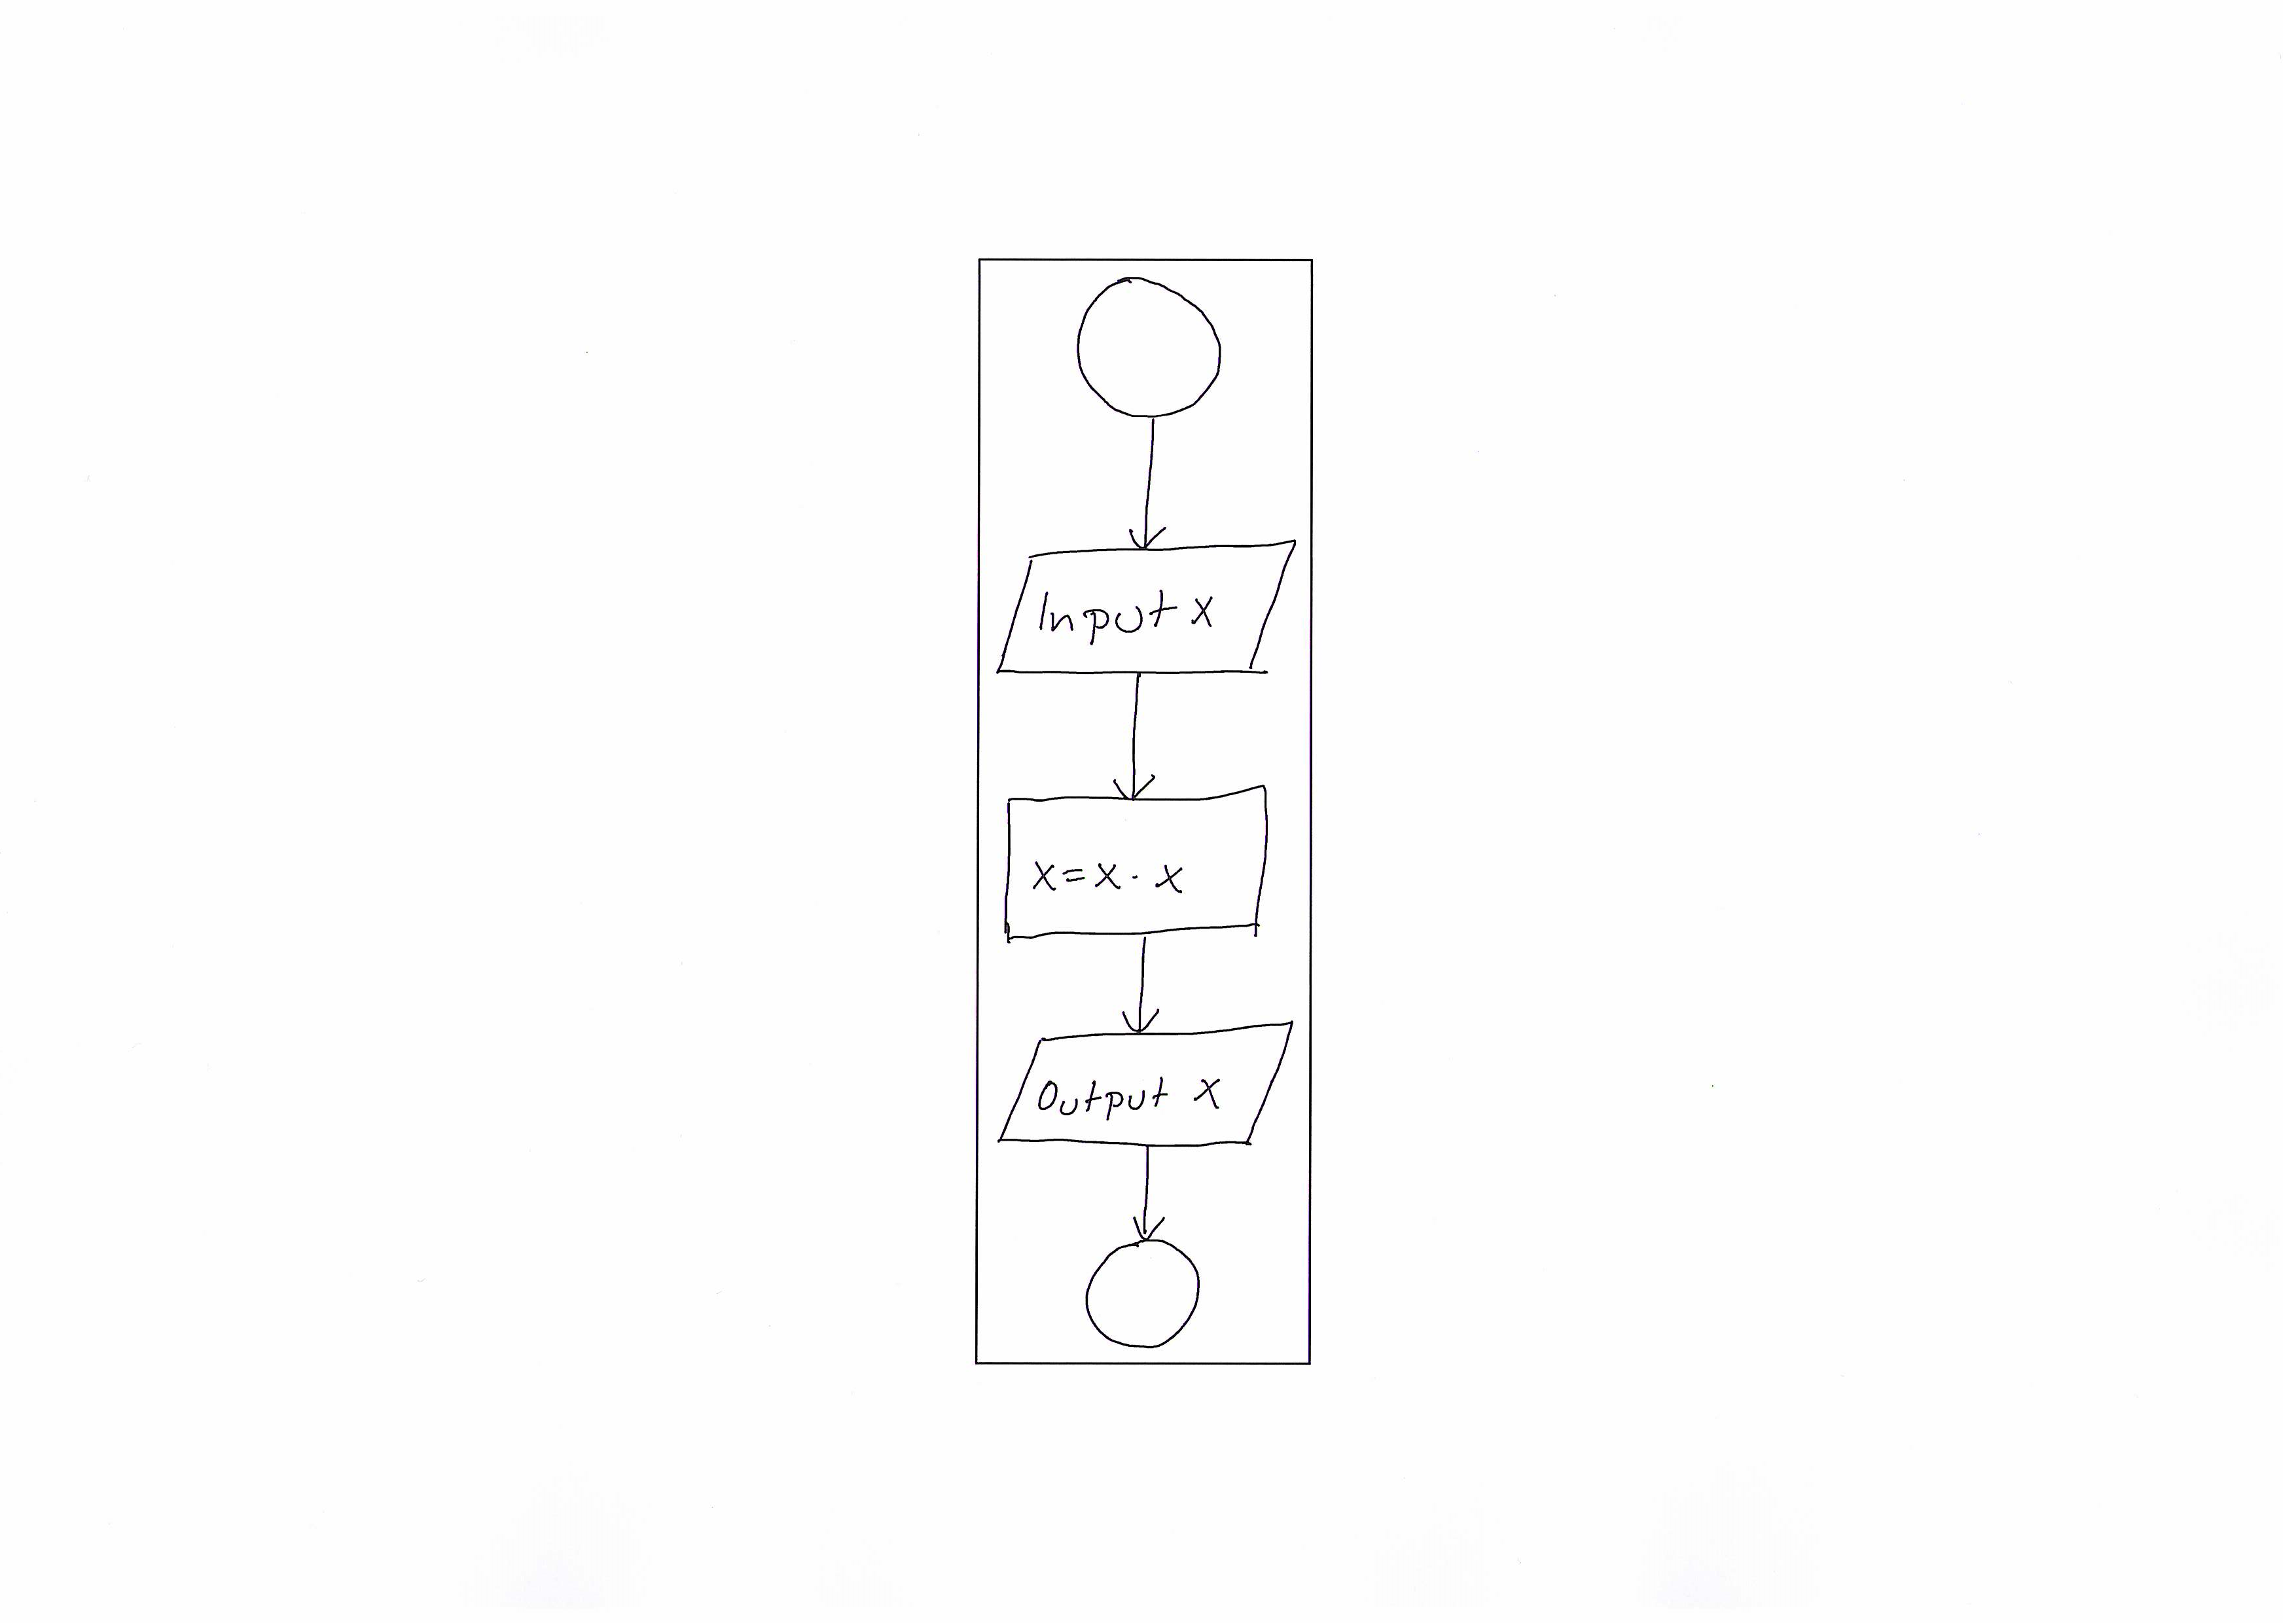 Input x
x = x · x
Output x